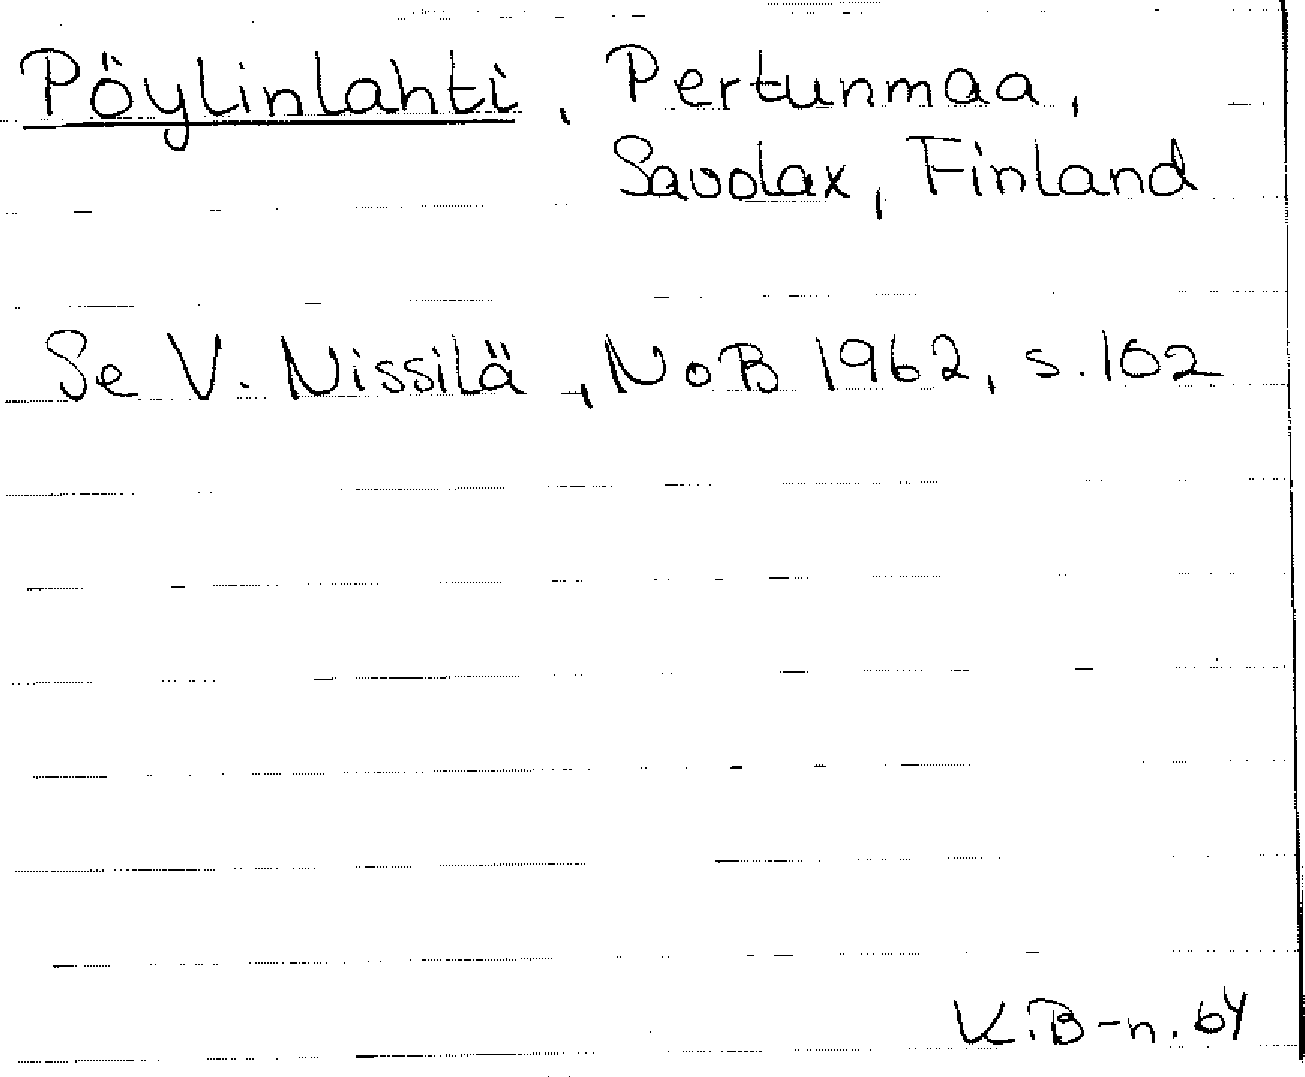 Pöylinlahti, Pertunmaa,
Savolax, Finland
Se V. Nissilä, NoB 1962, s. 102
K.B-n. 64